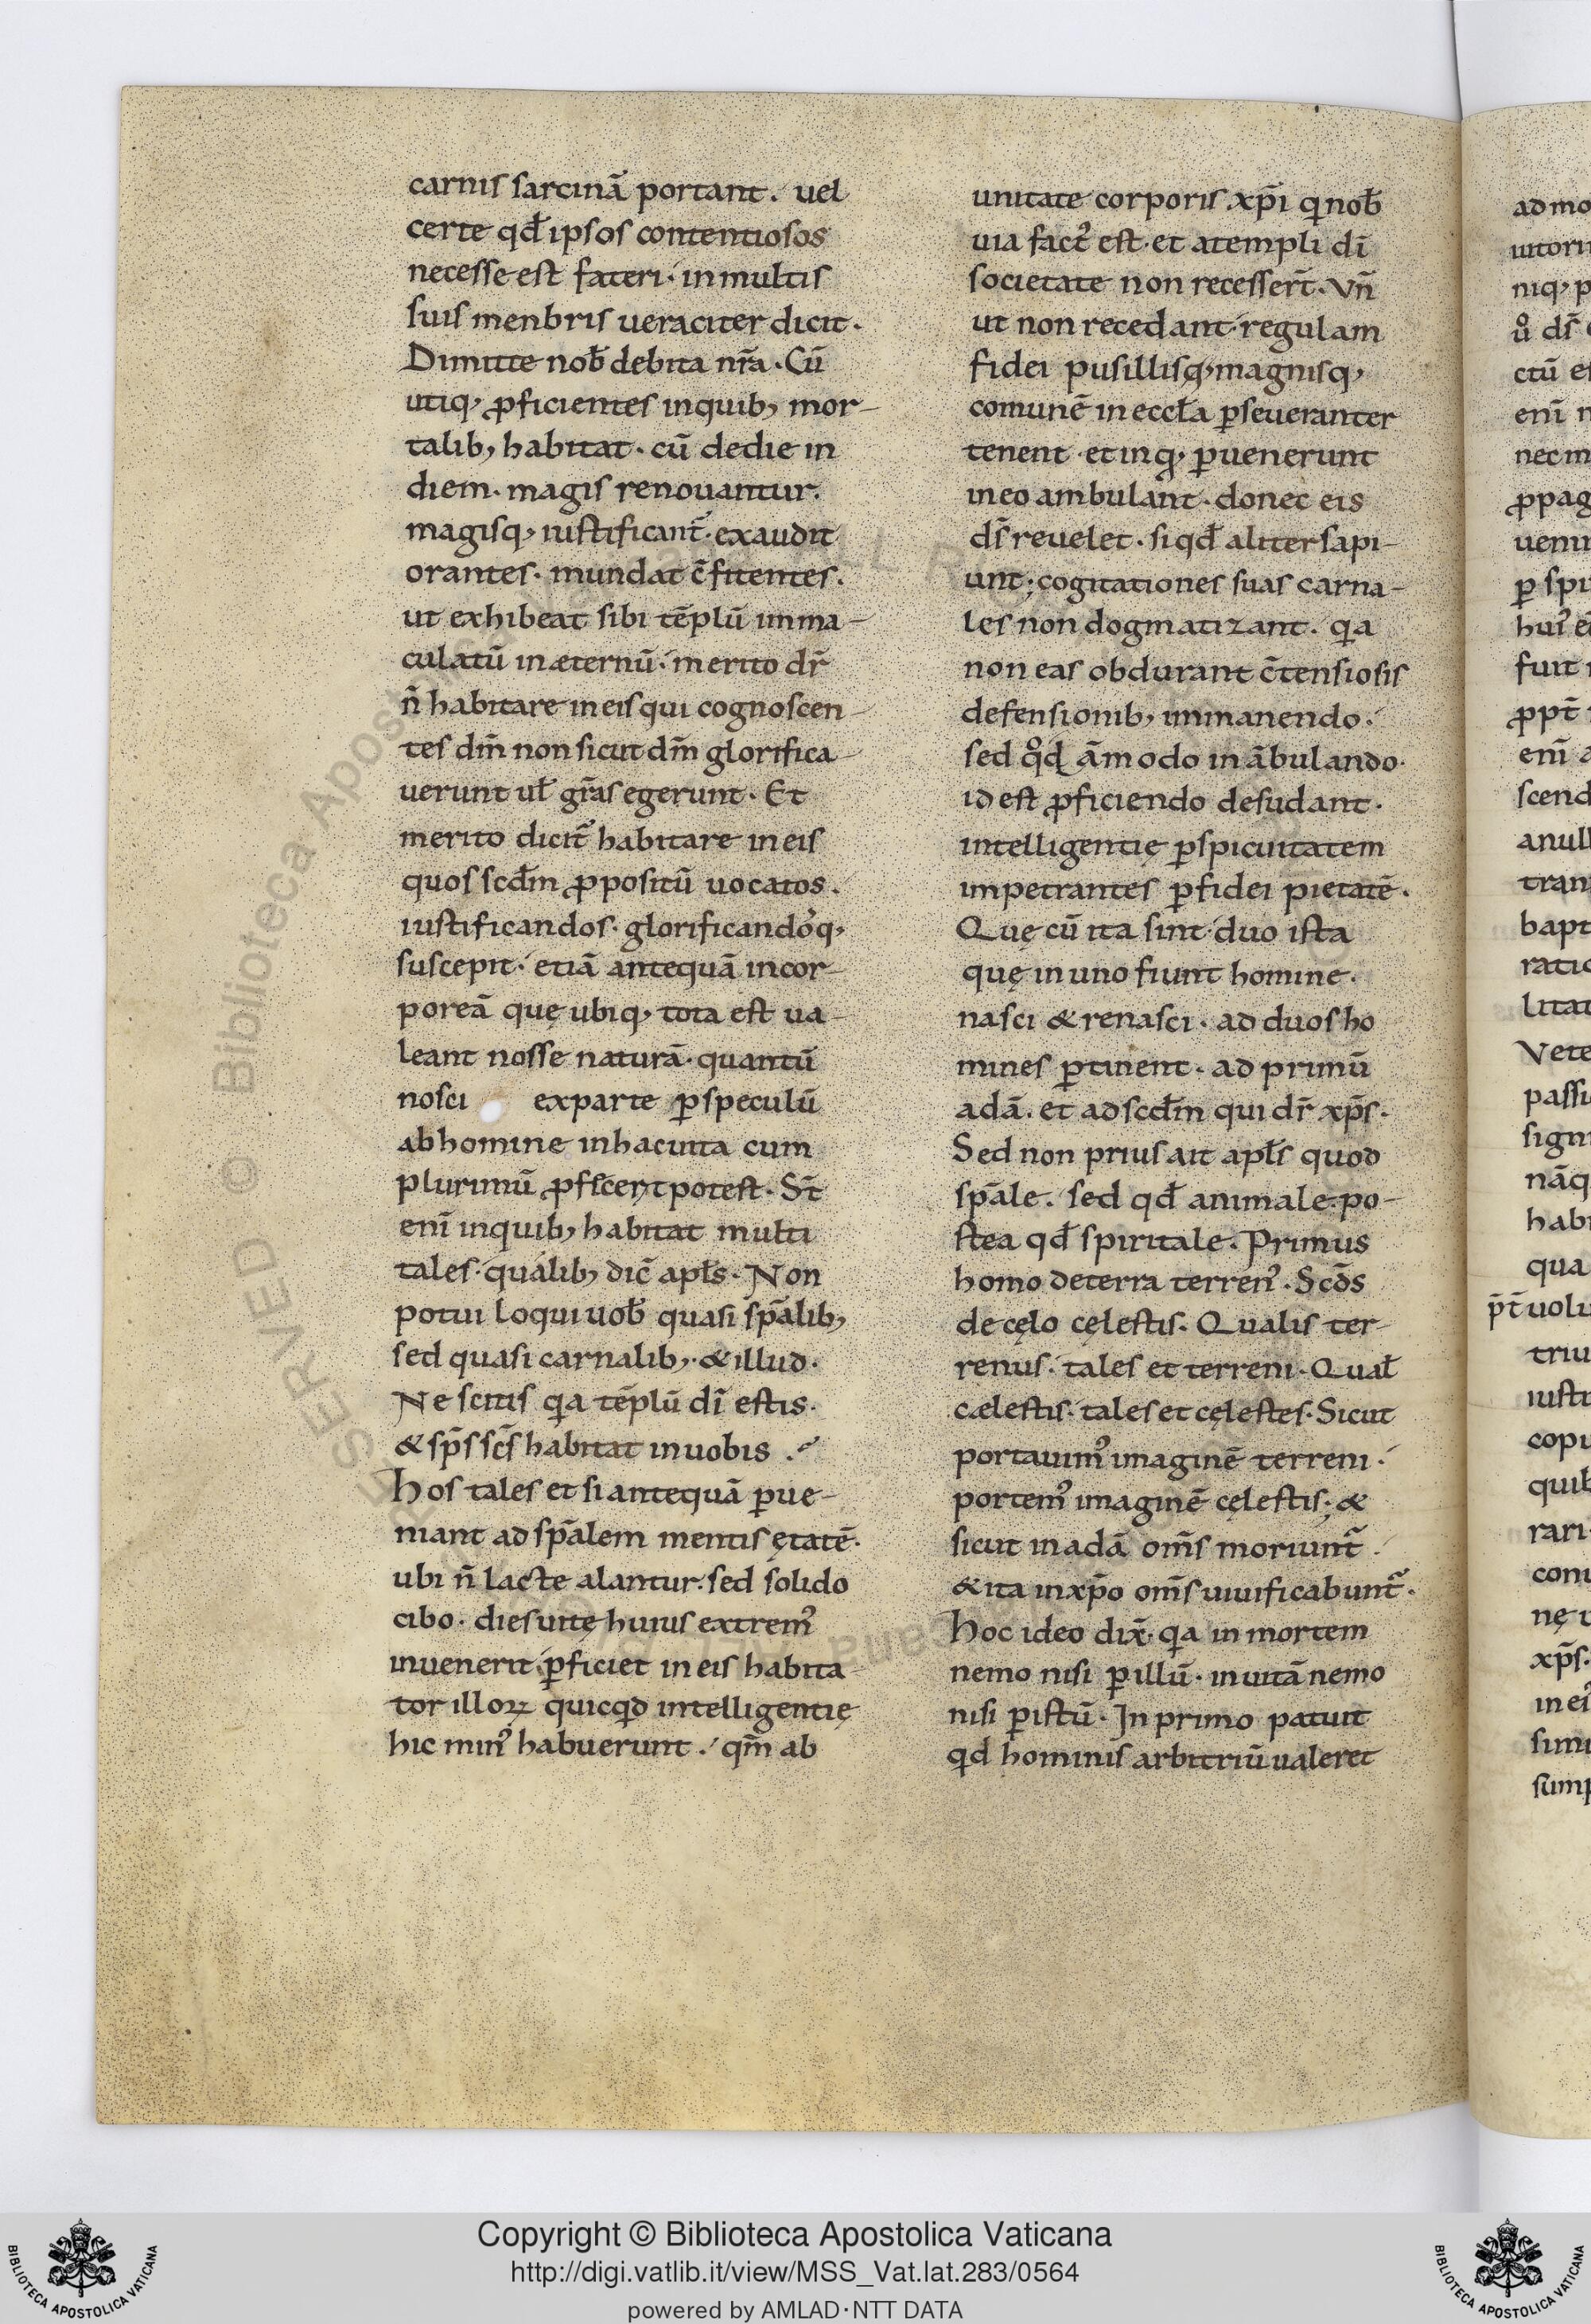 carnis sarcinā portant. uel
certe qđ ipsos contentiosos
necesse est fateri. in multis
suis menbris ueraciter dicit.
Dimitte nob̄ debita nr̄a. Cū
utiq; ꝓficientes in quib; mor-
talib; habitat. cū de die in
diem. magis renouantur.
magisq; iustificant᷑. exaudit
orantes. mundat c̄fitentes.
ut exhibeat sibi tēplū imma-
culatū in æternū. merito dr̄
n̄ habitare in eis qui cognoscen-
tes dm̄ non sicut dm̄ glorifica-
uerunt ul̄ gr̄as egerunt. Et
merito dicit᷑ habitare in eis
quos scđm ꝓpositū uocatos.
iustificandos. glorificandoq;
suscepit. etiā antequā incor-
poreā quę ubiq; tota est ua-
leant nosse naturā. quantū
nosci ex parte ꝑ speculū
ab homine in hac uita cum
plurimū ꝓfecerit potest. St̄
enī in quib; habitat multi
tales. qualib; dic̄ apl̄s. Non
potui loqui uob̄ quasi sp̄alib;
sed quasi carnalib;. & illud.
Nescitis qa tēplū dī estis.
& sp̄s sc̄s habitat in uobis.
Hos tales et si antequā ꝑue-
niant ad sp̄alem mentis ętatē.
ubi n̄ lacte alantur. sed solido
cibo. dies uitę huius extremꝰ
inuenerit. ꝑficiet in eis habita-
tor illoꝝ quicqd intelligentię
hic minꝰ habuerunt. qm̄ ab
unitate corporis xp̄i q nob̄
uia factꝰ est. et a templi dī
societate non recesser̄t. Vn̄
ut non recedant. regulam
fidei pusillisq; magnisq;
comunē in eccl̄a ꝑseueranter
tenent. et in qđ ꝑuenerunt
in eo ambulant. donec eis
ds̄ reuelet. si qđ aliter sapi-
unt. cogitationes suas carna-
les non dogmatizant. qa
non eas obdurant c̄tensiosis
defensionib; immanendo.
sed qͦđ āmodo in ābulando.
id est ꝓficiendo desudant.
intelligentię ꝑspicuitatem
impetrantes ꝑ fidei pietatē.
Quę cū ita sint. duo ista
quę in uno fiunt homine.
nasci & renasci. ad duos ho
mines ꝑtinent. ad primū
adā. et ad scđm qui dr̄ xp̄s.
Sed non prius ait apl̄s quod
sp̄ale. sed qđ animale. po-
stea qđ spiritale. Primus
homo de terra terrenꝰ. Scđs
de cęlo cęlestis. Qualis ter-
renus. tales et terreni. Qual̄
cælestis. tales et cęlestes. Sicut
portauimꝰ imaginē terreni.
portemꝰ imaginē cęlestis. &
sicut in adā om̄s moriunt᷑.
& ita in xp̄o om̄s uiuificabunt᷑.
Hoc ideo dix̄. qa in mortem
nemo nisi ꝑ illū. in uitā nemo
nisi ꝑ istū. In primo patuit
qd hominis arbitriū ualeret
Copyright © Biblioteca Apostolica Vaticana
http://digi.vatlib.it/view/MSS_Vat.lat.283/0564
powered by AMLAD·NTT DATA